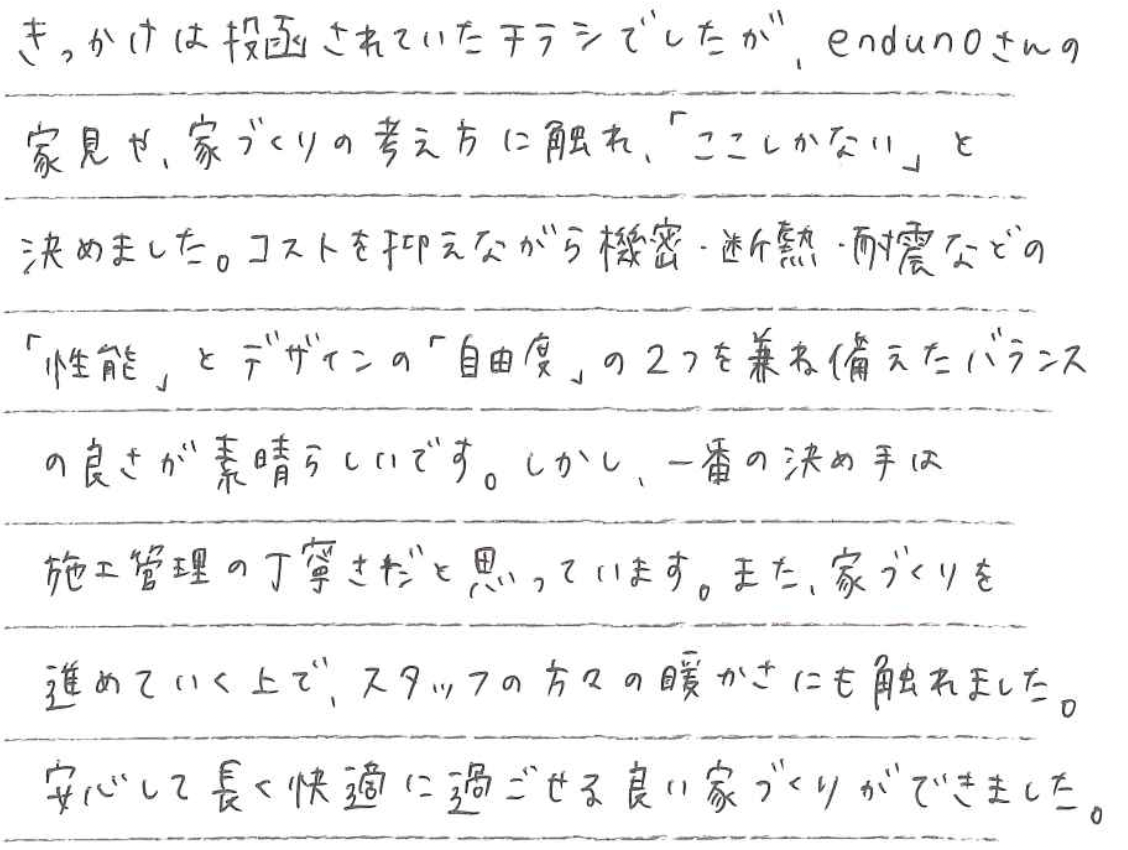 きっかけは投函されていたチラシでしたが、endunoさんの
家見や、家づくりの考え方に触れ、「ここしかない」と
決めました。コストを抑えながら機密・断熱・耐震などの
「性能」とデザインの「自由度」の2つを兼ね備えたバランス
の良さが素晴らしいです。しかし、一番の決め手は
施工管理の丁寧さだと思っています。また、家づくりを
進めていく上で、スタッフの方々の暖かさにも触れました。
安心して長く快適に過ごせる良い家づくりができました。